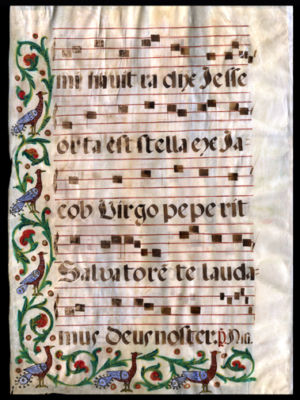 mi navit ra dix Jesse
orta est stella ex Ja-
cob Virgo peperit
Salvatorē te lauda-
mus deus noster. p̄